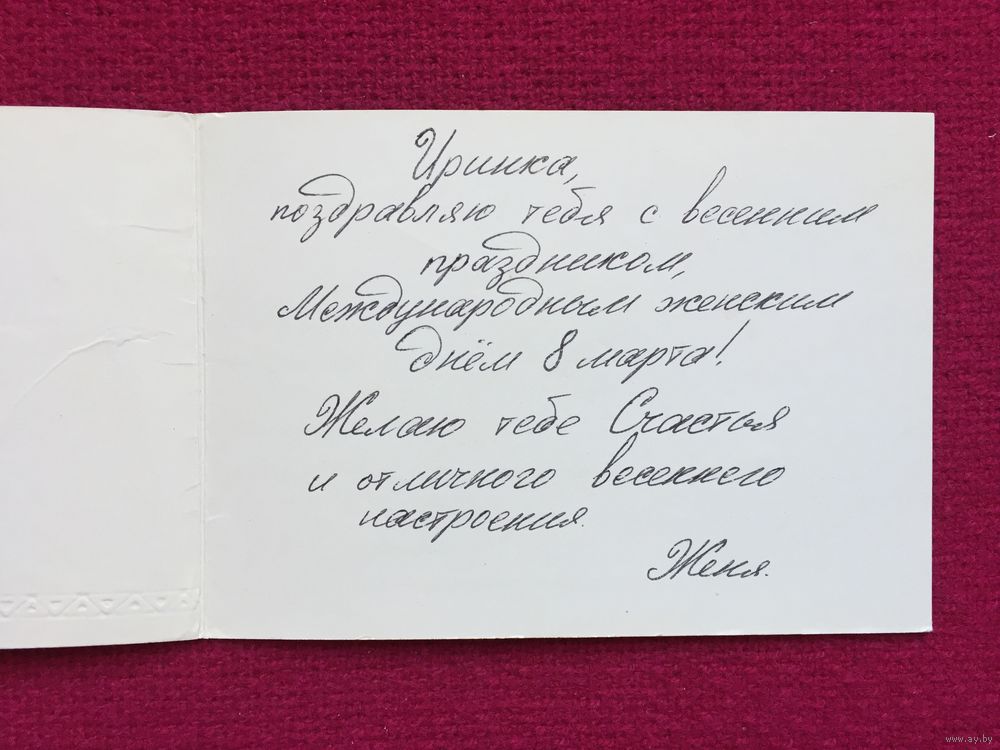 Иринка,
поздравляю тебя с весенним
праздником,
Международным женским
днём 8 марта!
Желаю тебе Счастья
и отличного весеннего
настроения.
Женя.
www.ay.by